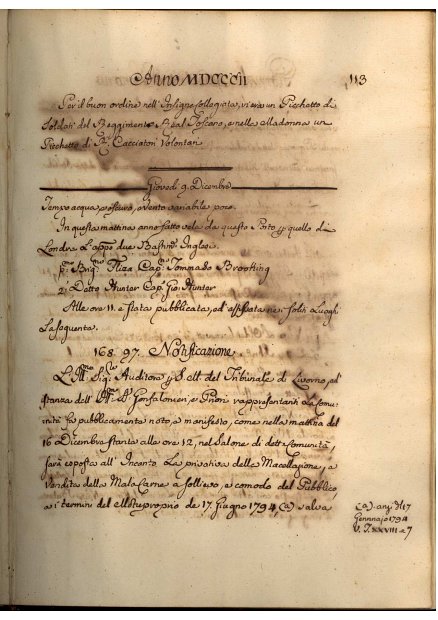 Anno MDCCCII
113
Per il buon ordine nell'Insigne Collegiata, vi era un Picchetto di
Soldati del Reggimento Real Toscano, e nella Madonna un
Picchetto di Cacciatori Volontari
Giovedì 9. Dicembre
Tempo acqua, e oscuro, e Vento variabile poco.
In questa mattina anno fatto vela da questo Porto p. quello di
Londra due Bastim.ti Inglesi.
p.mo Brig.no Eliza Cap.no Tommaso
2. Detto Hunter Cap. Gio: Hunter
Alle ore 11. e stata pubblicata, ed affissata nei soliti Luoghi
La seguente.
168. 97. Notificazione
L'Ill.mo Sig.re Auditore del Tribunale di Livorno, ad
istanza dell' Gonfaloniere, e Priori rappresentanti La Comu-
nità fa pubblicamente noto, e manifesto, come nella mattina del
16 Dicembre stante alle ore 12, nel Salone di dett.a Comunità,
sarà esposta all'Incanto La privativa della Macellazione, e
Vendita della Mala Carne a sollievo, e comodo del Pubblico,
a i termini del Motuproprio de' 17. Giugno 1794 (a) salva
(a)
Gennajo 1794
V. T. XXVIII a 7